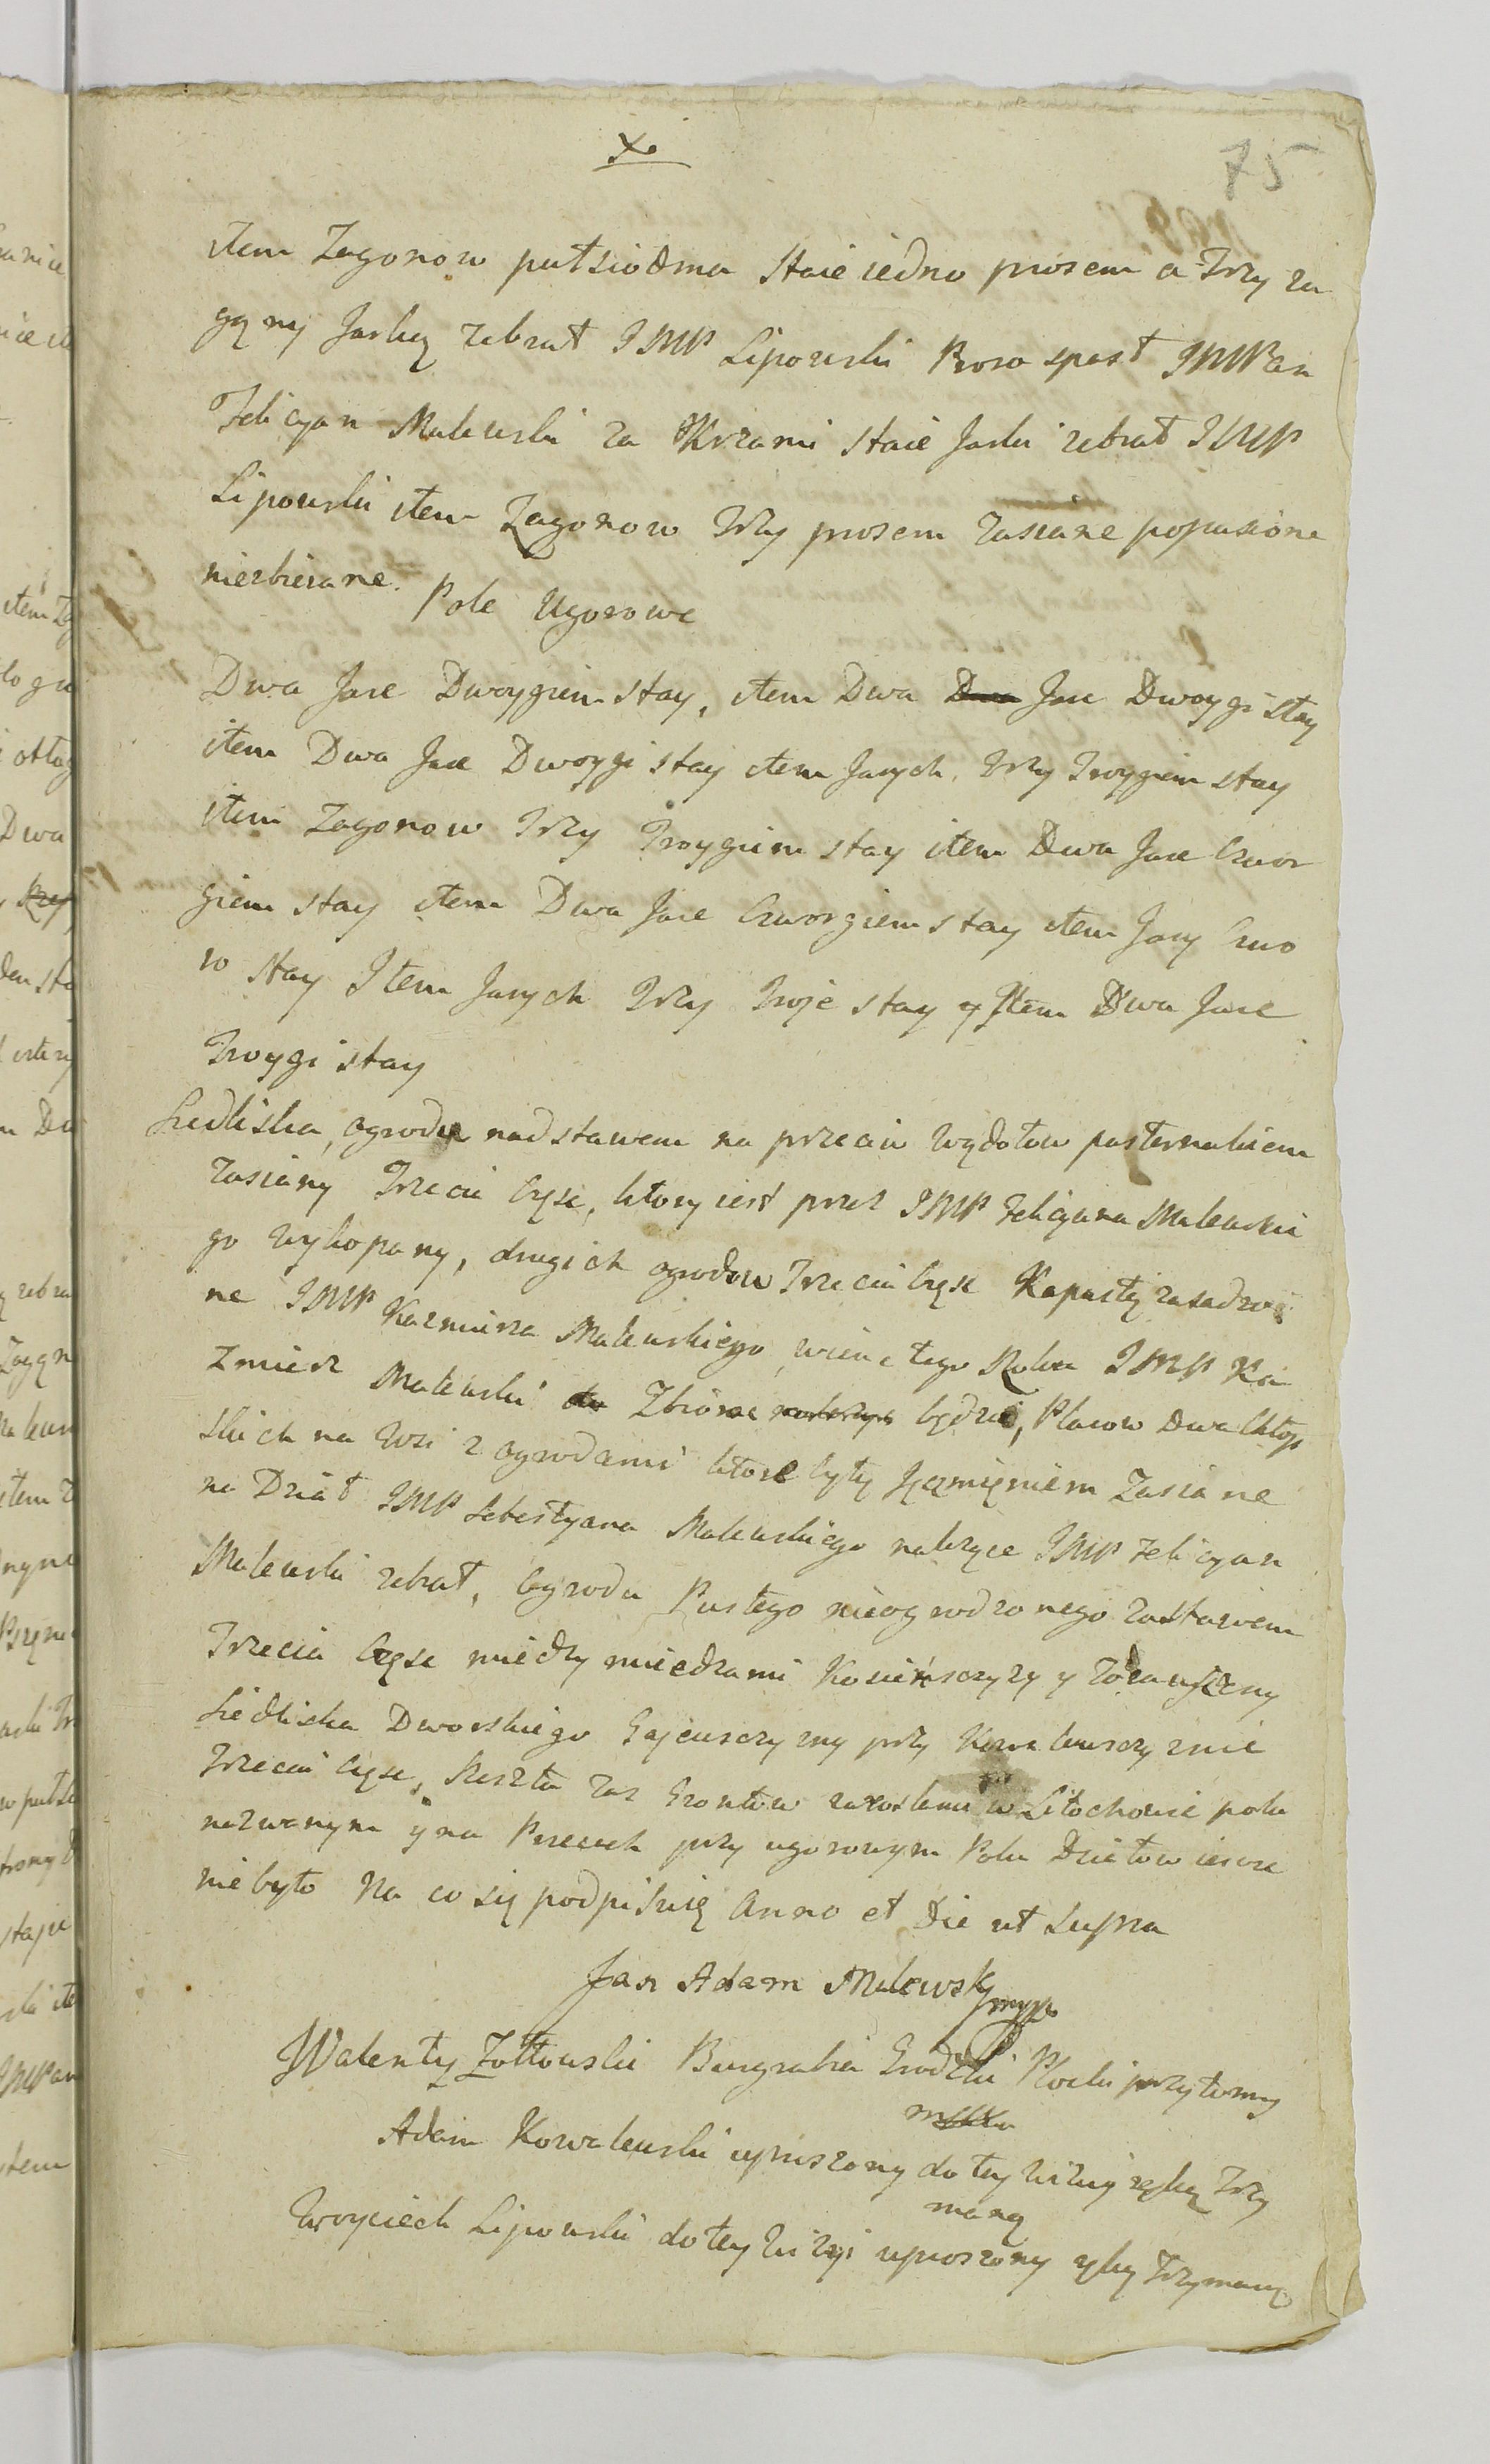 x
75
item Zagonow pułsiodma staie iedno prosem a Trzy za
gony Jarką zebrał JMP Lipowski Proso spasł JMPan
Felicyan Malewski za Krzami staie Jarki zebrał JMP
Lipowski item Zagonow Trzy prosem zasiane popasione
niezbierane.
Pole Ugorowe
Dwa Jase Dwoygiem stay, item Dwa Dwa Jase Dwoygi stay
item Dwa Jase Dwoygi stay item Jasych Trzy Troygiem stay
item Zagonow Trzy Troygiem stay item Dwa Jase Czwor
giem stay item Dwa Jase Czworgiem stay item Jasy Czwo
ro stay Item Jasych Trzy Troje stay y Item Dwa Jase
Troygi stay
Siedliska, ogrodu nad stawem na przeciw Wydołow pasternakiem
zasiany Trzecia Częsc, ktory iest przez JMP Felicyana Malewskie
go wykopany, drugich ogrodow Trzecia Częsc Kapustą zasadzo
ne JMP Kazmierza Malewskiego, tego Roku JMP Ka
zmierz Malewski Zbierac będzie, Placow Dwa Chłop
skich na Wsi z ogrodami ktore były Jęczmięniem Zasiane
na Dział JMP Sebestyana Malewskiego nalezące JMP Felicyan
Malewski zebrał, Ogrodu Pustego nieogrodzonego za stawem
Trzecia Częsc miedzy miedzami y
Siedliska Dworskiego przy Kowalewsczyznie
Trzecia Częsc, Reszta zas Grontow zarosłemi w polu
nazwanym y na przy ugorowym Polu Działow iescze
niebyło Na co się podpisuię Anno et Die ut Supra
Jan Adam Malewsky mpp
Walenty Zołtowski Burgrabia Grodzki Płocki przytomny
mpp
Adam Kowalewski uproszony do tey Wizyi ręką Trzy
maną
Woyciech Lipowski do tey Wizyi uproszony ręką Trzymaną